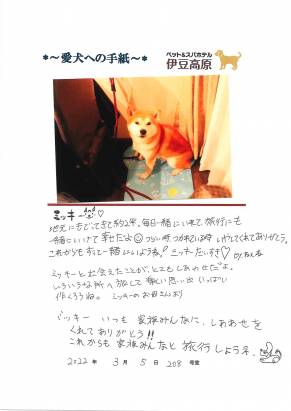 *~愛犬への手紙~*
ペット&スパホテル
伊豆高原
ミッキー♡
地元にもどってきて約2年。毎日一緒にいれて旅行にも
一緒にいけて幸せだよ☺ つらい時 つかれている時 いやしてくれてありがとう。
これからもずっと一緒にいようね。ミッキーだいすき♡
ミッキーと出会えたことが、とてもしあわせだよ。
いろいろな所へ旅して 楽しい思い出 いっぱい
作くろうね。 ミッキーのお母さんより
ミッキー いつも 家族みんなに、しあわせを
くれて ありがとう!!
これからも 家族みんなと 旅行しようネ。
2022 年 3 月 5 日 208 号室